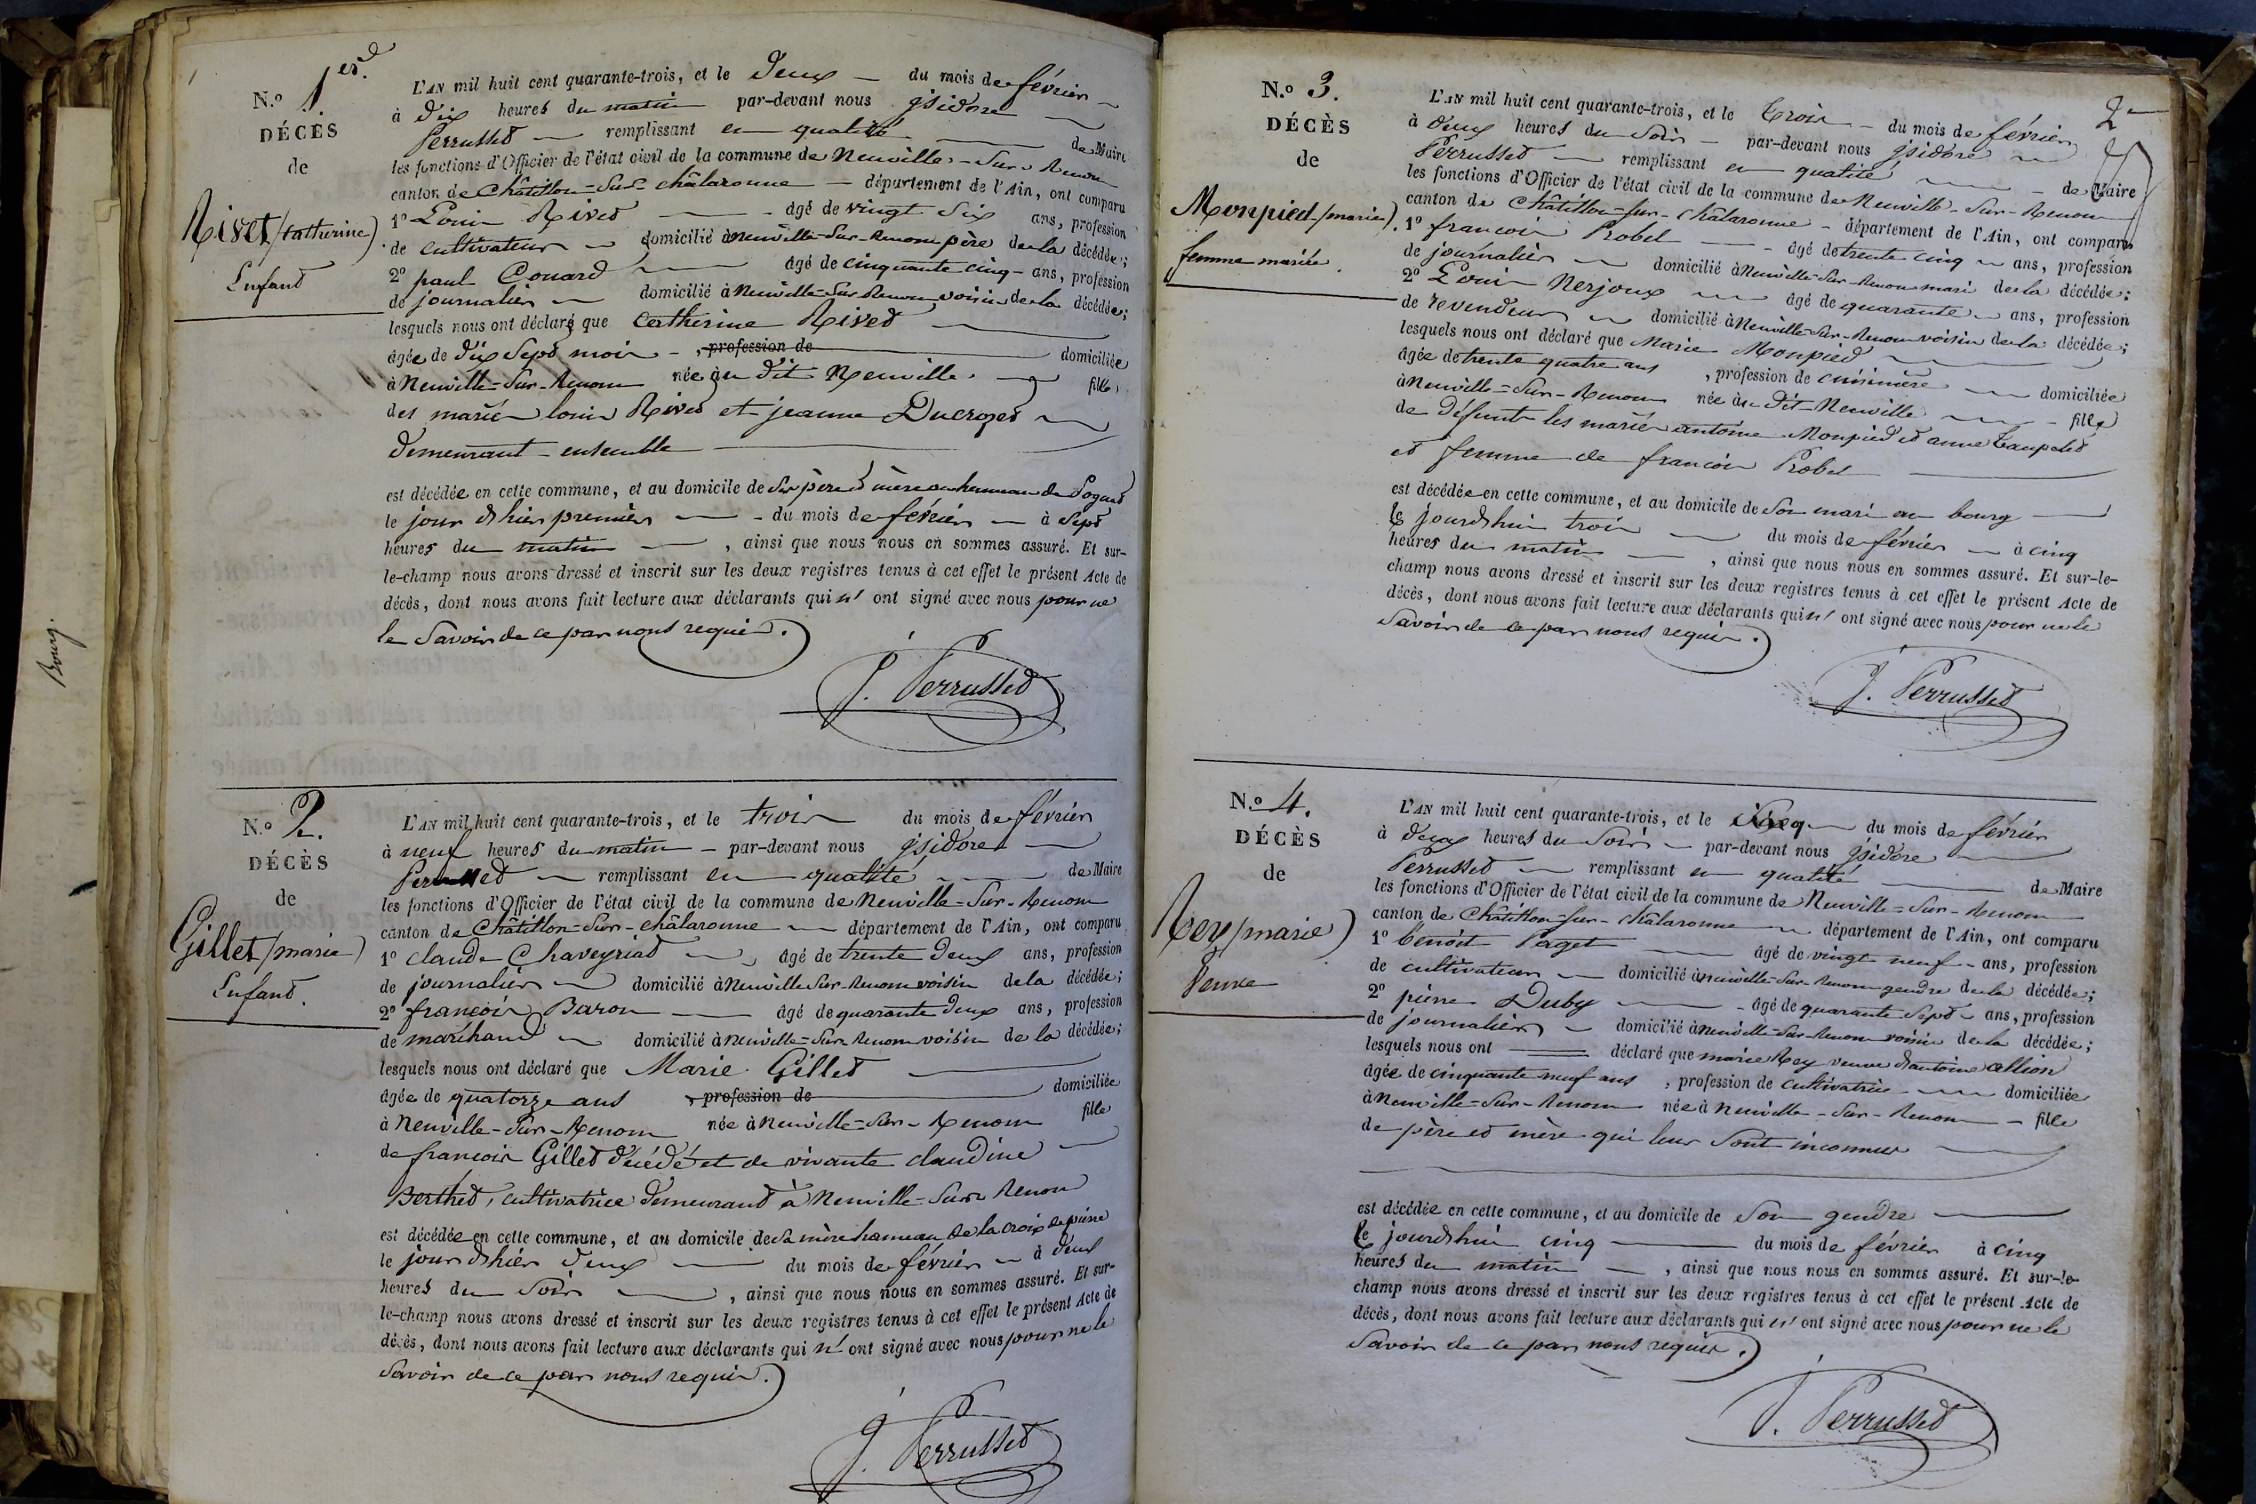 N.º 1er.
DÉCÈS
de
Rivet (Catherine)
Enfant
L'AN mil huit cent quarante-trois, et le deux — du mois de février
à dix heures du matin par-devant nous jsidore
Perrusset — remplissant en qualité — de Maire
les fonctions d'Officier de l'état civil de la commune de Neuville-Sur-Renom
canton de Châtillon-Sur-châlaronne — département de l'Ain, ont comparu
1º Louis Rivet — âgé de vingt Six ans, profession
de cultivateur — domicilié à Neuville-Sur-Renom père de la décédée;
2º paul Couard — âgé de cinquante cinq - ans, profession
de journalier — domicilié à Neuville-Sur-Renom voisin de la décédée;
lesquels nous ont déclaré que Catherine Rivet
âgée de dix Sept mois - , profession de domiciliée
à Neuville-Sur-Renom née au dit Neuville fille
des mariés louis Rivet et jeanne Ducrozet
demeurant ensemble
est décédée en cette commune, et au domicile de Ses père et mère au hameau de
le jour d'hier premier — du mois de février — à Sept
heures du matin — , ainsi que nous nous en sommes assuré. Et sur-
le-champ nous avons dressé et inscrit sur les deux registres tenus à cet effet le présent Acte de
décès, dont nous avons fait lecture aux déclarants qui n' ont signé avec nous pour ne
le Savoir de ce par nous requis.
J. Perrusset
N.º 2.
DÉCÈS
de
Gillet (marie)
Enfant.
L'AN mil huit cent quarante-trois, et le trois du mois de février
à neuf heures du matin — par-devant nous jsidore
Perrusset — remplissant en qualité — de Maire
les fonctions d'Officier de l'état civil de la commune de Neuville-Sur-Renom
canton de Châtillon-Sur-châlaronne — département de l'Ain, ont comparu
1º claude Chaveyriat — âgé de trente deux ans, profession
de journalier — domicilié à Neuville Sur-Renom voisin de la décédée;
2º françois Baron — âgé de quarante deux ans, profession
de marchand — domicilié à Neuville-Sur-Renom voisin de la décédée;
lesquels nous ont déclaré que Marie Gillet
âgée de quatorze ans , profession de domiciliée
à Neuville-Sur-Renom née à Neuville-Sur-Renom fille
de françois Gillet décédé et de vivante claudine
Berthet, cultivatrice demeurant à Neuville-Sur-Renom
est décédée en cette commune, et au domicile de Sa mère hameau de la croix de pierre
le jour d'hier deux — du mois de février — à deux
heures du Soir — , ainsi que nous nous en sommes assuré. Et sur-
le-champ nous avons dressé et inscrit sur les deux registres tenus à cet effet le présent Acte de
décès, dont nous avons fait lecture aux déclarants qui n' ont signé avec nous pour ne le
Savoir de ce par nous requis.
J. Perrusset
Bourg.
2
N.º 3.
DÉCÈS
de
Monpied (marie).
femme mariée.
L'AN mil huit cent quarante-trois, et le trois — du mois de février
à deux heures du Soir — par-devant nous jsidore
Perrusset — remplissant en qualité — de Maire
les fonctions d'Officier de l'état civil de la commune de Neuville-Sur-Renom
canton de Châtillon-sur-châlaronne - département de l'Ain, ont comparu
1º françois Probel — âgé de trente cinq — ans, profession
de journalier — domicilié à Neuville-Sur-Renom mari de la décédée;
2º Louis Nerjoux — âgé de quarante — ans, profession
de revendeur — domicilié à Neuville-Sur-Renom voisin de la décédée;
lesquels nous ont déclaré que Marie Monpied
âgée de trente quatre ans , profession de cuisinière — domiciliée
à Neuville-Sur-Renom née au dit Neuville — fille
de défunts les mariés antoine Monpied et anne
et femme de françois Probel
est décédée en cette commune, et au domicile de Son mari au bourg
le jourd'hui trois — du mois de février — à cinq
heures du matin — , ainsi que nous nous en sommes assuré. Et sur-le-
champ nous avons dressé et inscrit sur les deux registres tenus à cet effet le présent Acte de
décès, dont nous avons fait lecture aux déclarants qui n' ont signé avec nous pour ne le
Savoir de ce par nous requis.
J. Perrusset
N.º 4.
DÉCÈS
de
Rey (marie)
Veuve
L'AN mil huit cent quarante-trois, et le cinq — du mois de février
à deux heures du Soir — par-devant nous jsidore
Perrusset — remplissant en qualité — de Maire
les fonctions d'Officier de l'état civil de la commune de Neuville-Sur-Renom
canton de Châtillon-sur-châlaronne — département de l'Ain, ont comparu
1º benoit Paget — âgé de vingt neuf - ans, profession
de cultivateur — domicilié à Neuville-Sur-Renom gendre de la décédée;
2º pierre Duby — âgé de quarante Sept - ans, profession
de journalier — domicilié à Neuville-Sur-Renom voisin de la décédée;
lesquels nous ont — déclaré que marie Rey veuve d'antoine allion
âgée de cinquante neuf ans , profession de cultivatrice — domiciliée
à Neuville-Sur-Renom née à Neuville-Sur-Renom — fille
de père et mère qui leur Sont inconnus
est décédée en cette commune, et au domicile de Son gendre
le jourd'hui cinq — du mois de février à cinq
heures du matin — , ainsi que nous nous en sommes assuré. Et sur-le-
champ nous avons dressé et inscrit sur les deux registres tenus à cet effet le présent Acte de
décès, dont nous avons fait lecture aux déclarants qui n' ont signé avec nous pour ne le
Savoir de ce par nous requis.
J. Perrusset